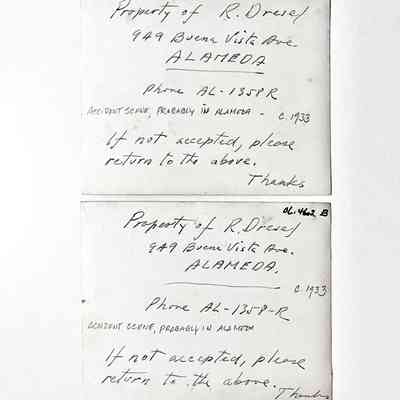 Property of R. Dresel
949 Buena Vista Ave.
ALAMEDA
Phone AL-1358R
ACCIDENT SCENE, PROBABLY IN ALAMEDA - C. 1933
If not accepted, please
return to the above.
Thanks
OL.4602 B
Property of R. Dresel
949 Buena Vista Ave.
ALAMEDA.
C. 1933
Phone AL-1358-R
ACCIDENT SCENE, PROBABLY IN ALAMEDA
If not accepted, please
return to the above.
Thanks